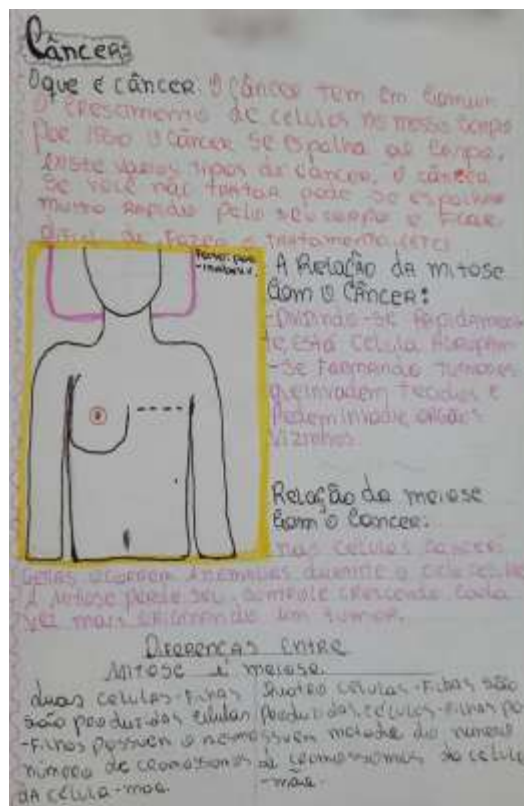 Câncer:
O que é câncer. O câncer tem em comum
o crescimento de celulas no nosso corpo
por isso o câncer se espalha ao corpo,
existe varios tipos de câncer, o câncer
se você não tratar pode se espalhar
muito rapido pelo seu corpo e ficar
dificil de fazer o tratamento (etc)
A Relação da mitose
com o Câncer:
-Dividindo-se rapidamen-
te, esta celula agrupam
-se formando tumores
que invadem tecidos e
podem invadir orgãos
vizinhos
Relação da meiose
com o Cancer:
nas celulas cancer-
ocorrem anomalias durante o ciclo
A mitose perde seu controle crescendo cada
vez mais originando um tumor.
Diferenças entre
Mitose e meiose
duas celulas-filhas
são produzidas celulas
-filhas possuem o mesmo
número de cromossomos
da célula-mãe.
Quatro celulas-filhas são
produzidas, celulas-filhas po
ssuem metade do número
de cromossomos da celula
-mãe.